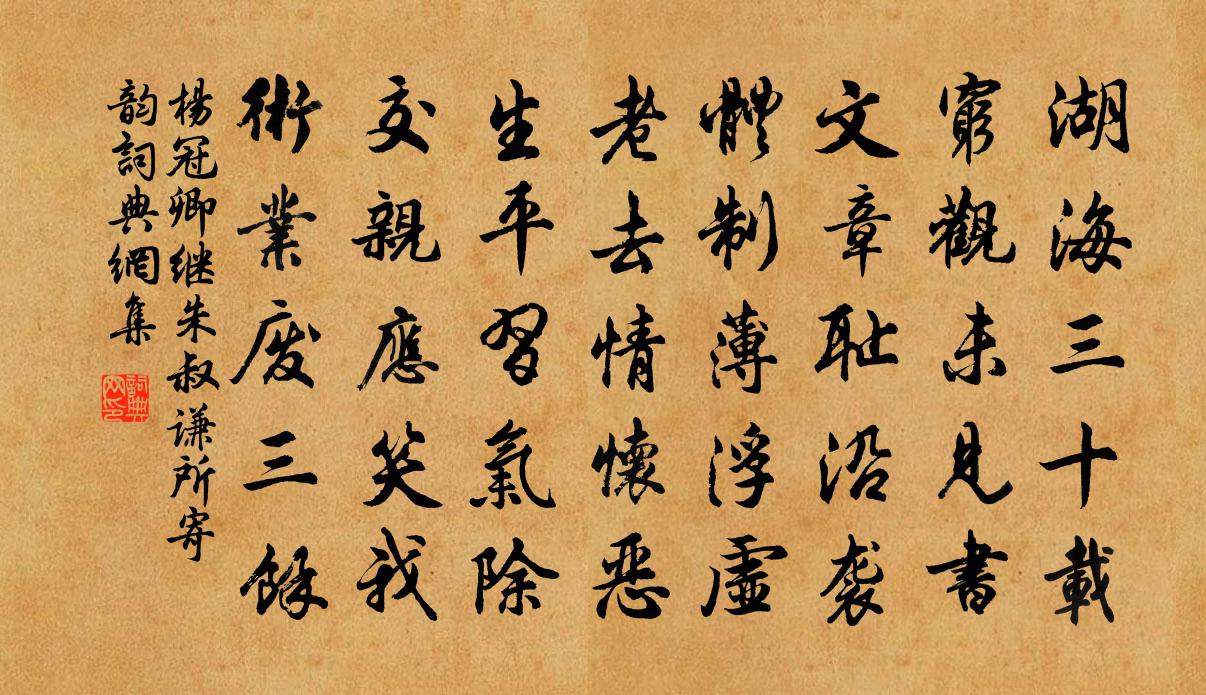 湖海三十載
窮觀未見書
文章耻沿袭
體制薄浮虛
老去情懷惡
生平習氣除
交親應笑我
術業废三餘
楊冠卿继朱叔谦所寄
韵詞典網集
詞典網印